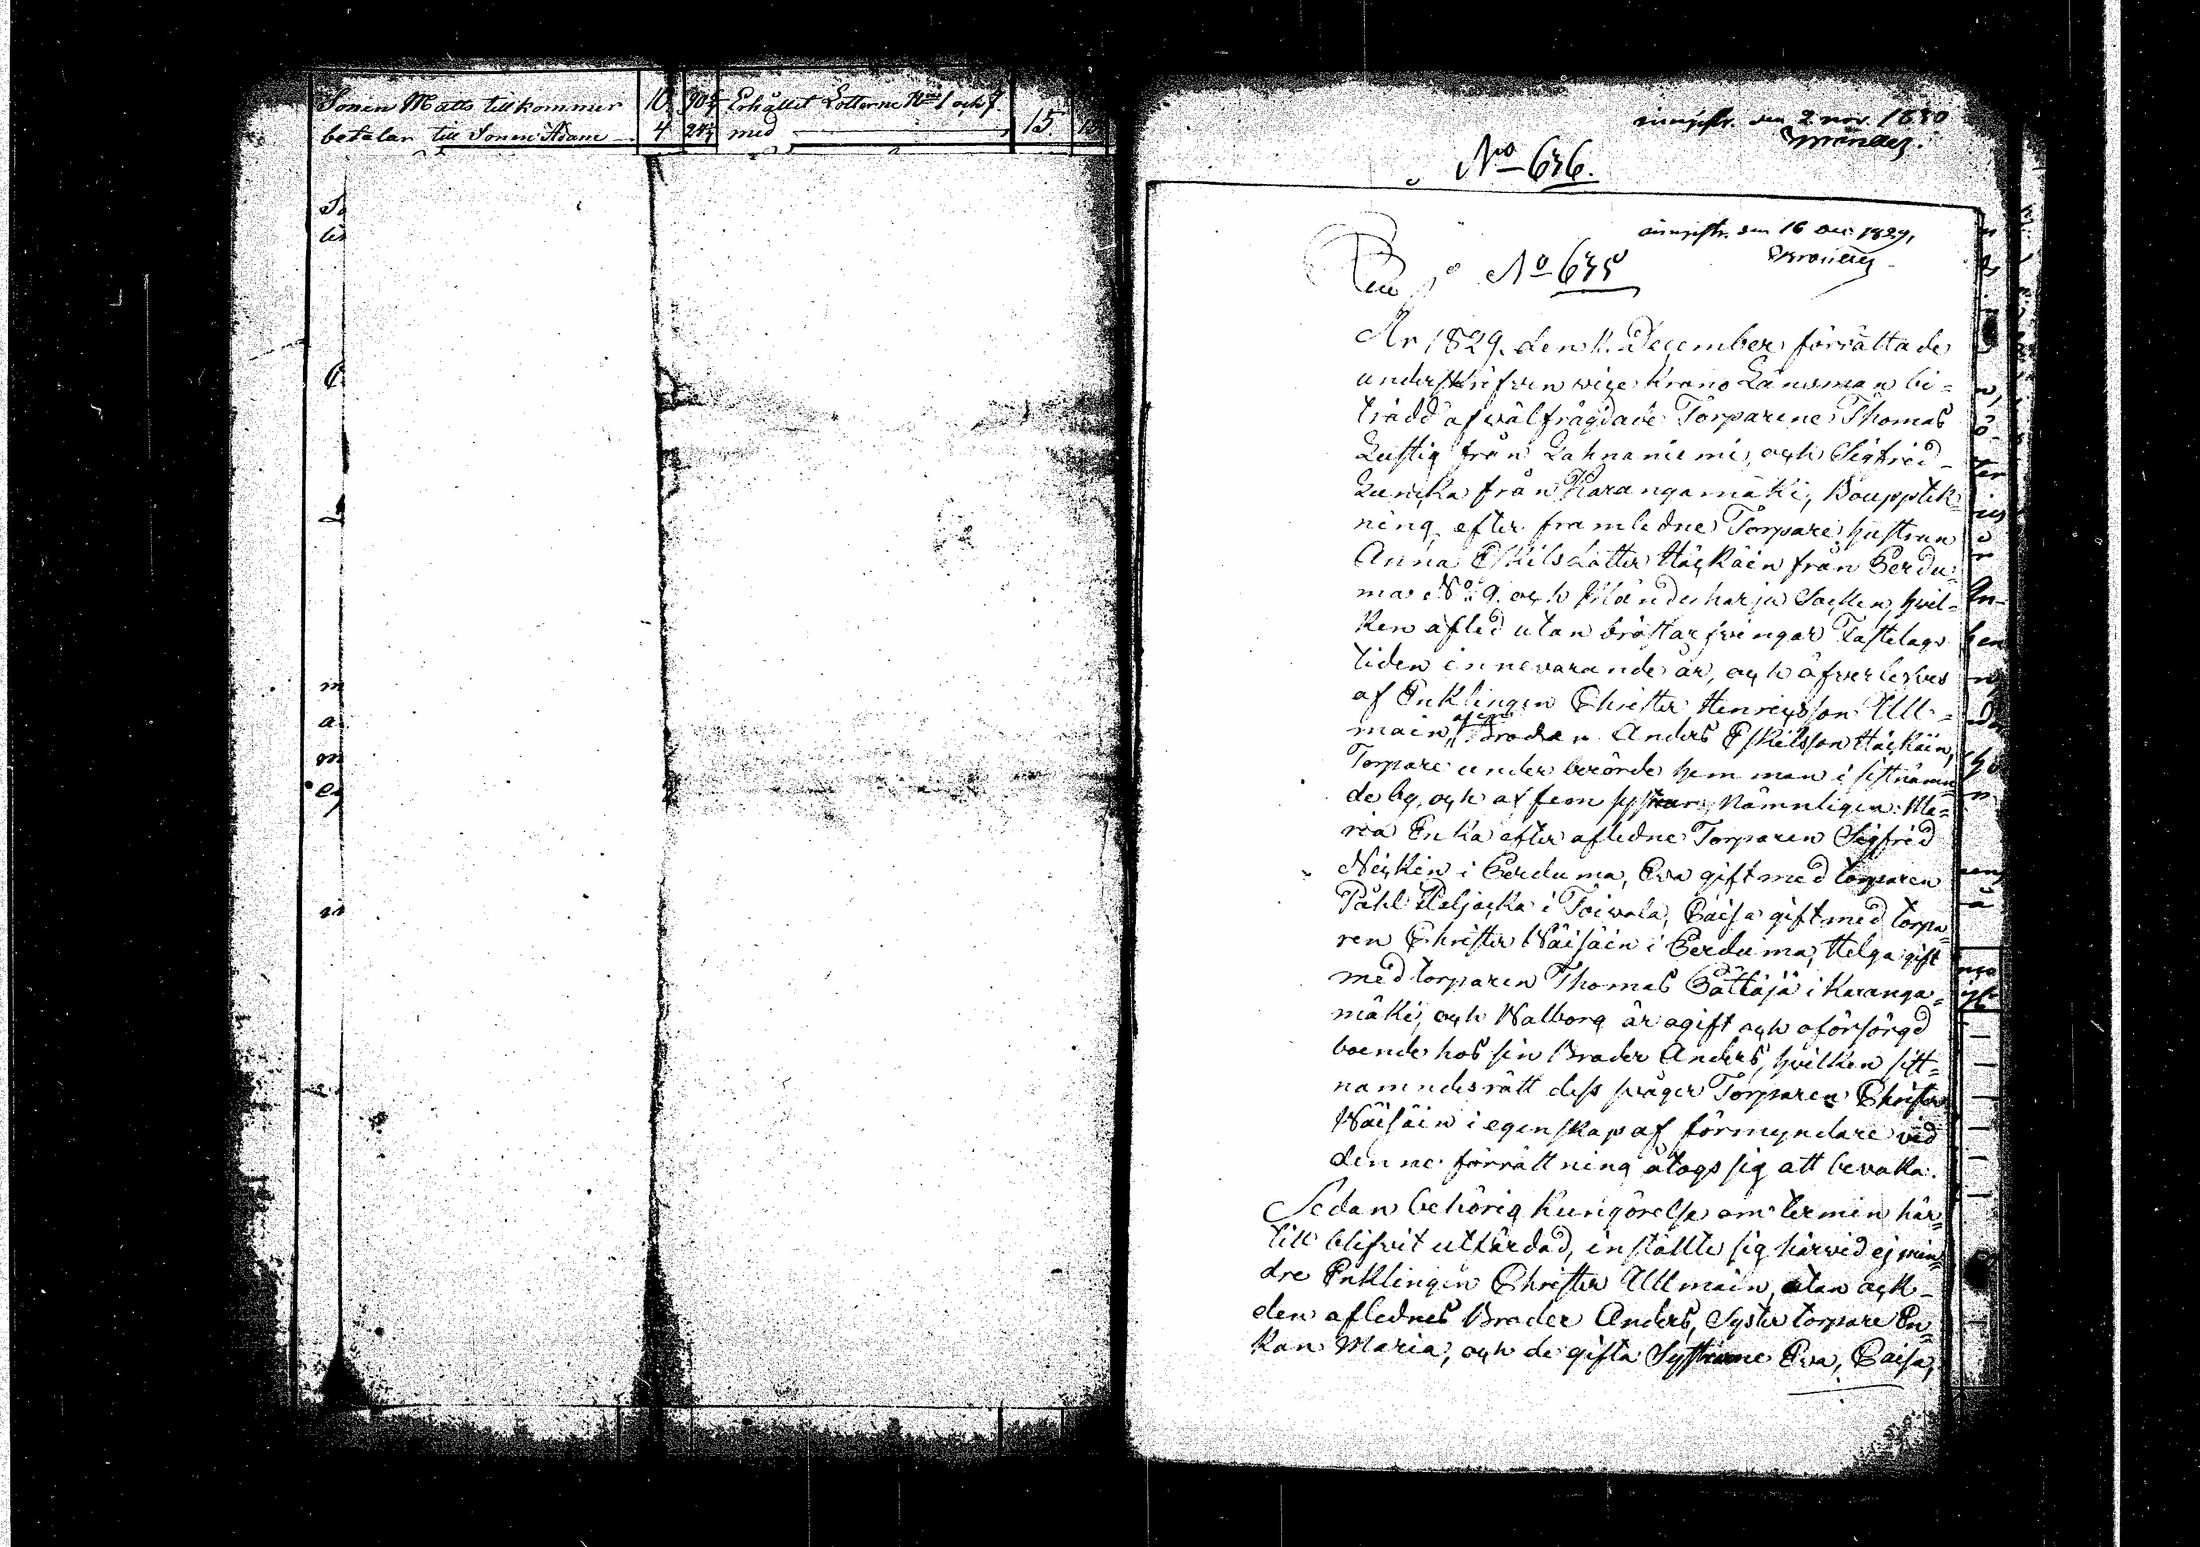 Sonen Matts tillkommer 10 90 Erhållit Lotterne No 1 och 7
betalar till Sonen Adam 4 24 med 15
den 2 nov. 1830
No 636.
den 16 Dec 1829,
No 635
År 1829. den 11. December förrättade
underskrifven vice Krono Länsman bi-
trädd af välfrägdade Torparene Thomas
Lustig från Lahnaniemi, och Sigfrid
från Karangamäki, Bouppteck-
ning efter framledne Torpare hustrun
Anna Eskilsdotter Häckäin från Perdu-
ma No 9. och Mändyharju Socken, hvil-
ken afled utan bröstarfvingar Fastelags
tiden innevarande år, och öfverlefves
af Enklingen Christer Henricsson Ull-
main, af egne Brodren Anders Eskilsson Häckäin,
Torpare under berörde hemman i sistnämn-
de by, och af fem systrar, Nämnligen: Ma-
ria Enka efter afledne Torparen Sigfrid
Neckin i Perduma, Eva gift med torparen
Påhl Paljacka i Toiwola, Caisa gift med torpa-
ren Christer Wäisäin i Perduma, Helga gift
med torparen Thomas Pättäjä i Karanga-
mäki, och Walborg är ogift och oförsörgd
boende hos sin Broder Anders, hvilken sist-
namndes rätt dess svåger Torparen Christer
Wäisäin i egenskap af förmyndare vid
denne förrättning åtogs sig att bevaka.
Sedan behörig kungörelse om termin här-
till blifvit utfärdad, inställte sig härwid ej min-
dre Enklingen Christer Ullmain, utan ock
den aflednes Broder Anders, Syster torpare En-
kan Maria, och de gifta Systrarne Eva, Caisa,